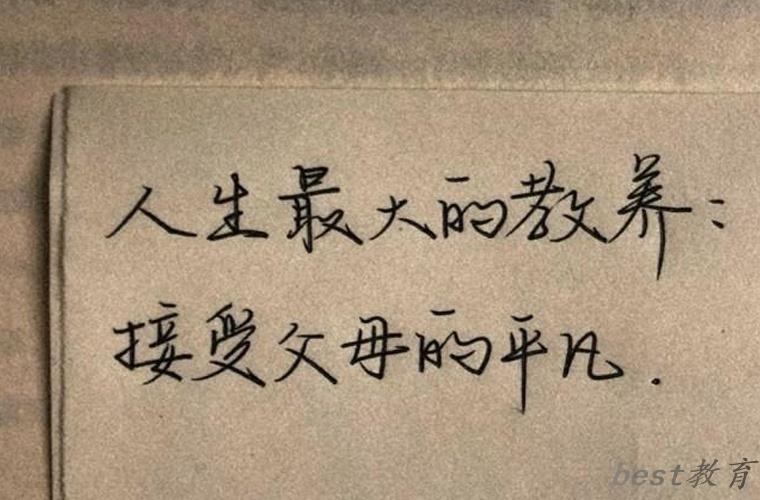 人生最大的教养:
接受父母的平凡.
best教育